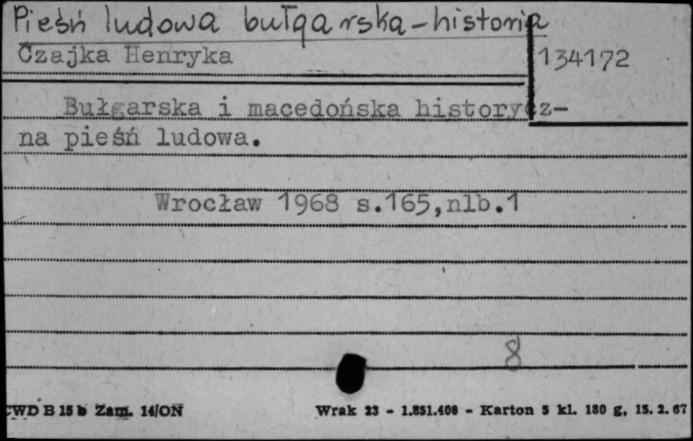 Pieśń ludowa bułgarska - historia
Czajka Henryka
134172
Bułgarska i macedońska historycz-
na pieśń ludowa.
Wrocław 1968 s.165,nlb.1
8
CWD B 15 b Zam. 14/ON
Wrak 23 - 1.851.400 - Karton 5 kl. 180 g, 15. 2. 67